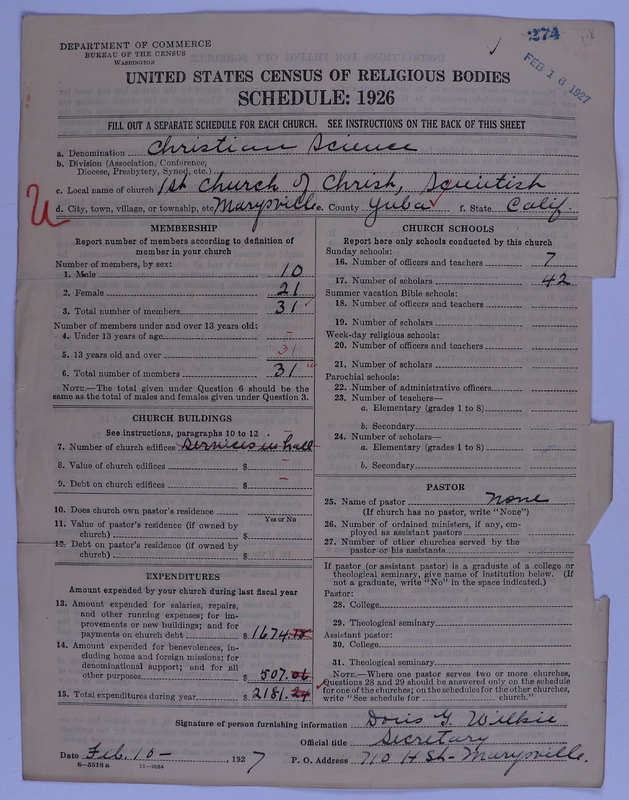 274
FEB 16 1927
DEPARTMENT OF COMMERCE
BUREAU OF THE CENSUS
WASHINGTON
UNITED STATES CENSUS OF RELIGIOUS BODIES
SCHEDULE: 1926
FILL OUT A SEPARATE SCHEDULE FOR EACH CHURCH. SEE INSTRUCTIONS ON THE BACK OF THIS SHEET
a. Denomination Christian Science
b. Division (Association, Conference, Diocese, Presbytery, Synod, etc.)
c. Local name of church 1st Church of Christ, Scientist
d. City, town, village, or township, etc. Marysville e. County Yuba f. State Calif.
MEMBERSHIP
Report number of members according to definition of member in your church
Number of members, by sex:
1. Male 10
2. Female 21
3. Total number of members 31
Number of members under and over 13 years old:
4. Under 13 years of age –
5. 13 years old and over 31
6. Total number of members 31
NOTE.—The total given under Question 6 should be the same as the total of males and females given under Question 3.
CHURCH BUILDINGS
See instructions, paragraphs 10 to 12
7. Number of church edifices Services in hall
8. Value of church edifices $ –
9. Debt on church edifices $ –
10. Does church own pastor's residence
Yes or No
11. Value of pastor's residence (if owned by church) $
12. Debt on pastor's residence (if owned by church) $
EXPENDITURES
Amount expended by your church during last fiscal year
13. Amount expended for salaries, repairs, and other running expenses; for improvements or new buildings; and for payments on church debt $ 1674.
14. Amount expended for benevolences, including home and foreign missions; for denominational support; and for all other purposes $ 507.06
15. Total expenditures during year $ 2181.24
CHURCH SCHOOLS
Report here only schools conducted by this church
Sunday schools:
16. Number of officers and teachers 7
17. Number of scholars 42
Summer vacation Bible schools:
18. Number of officers and teachers
19. Number of scholars
Week-day religious schools:
20. Number of officers and teachers
21. Number of scholars
Parochial schools:
22. Number of administrative officers
23. Number of teachers—
a. Elementary (grades 1 to 8)
b. Secondary
24. Number of scholars—
a. Elementary (grades 1 to 8)
b. Secondary
PASTOR
25. Name of pastor None
(If church has no pastor, write "None")
26. Number of ordained ministers, if any, employed as assistant pastors
27. Number of other churches served by the pastor or his assistants
If pastor (or assistant pastor) is a graduate of a college or theological seminary, give name of institution below. (If not a graduate, write "No" in the space indicated.)
Pastor:
28. College
29. Theological seminary
Assistant pastor:
30. College
31. Theological seminary
NOTE.—Where one pastor serves two or more churches, Questions 28 and 29 should be answered only on the schedule for one of the churches; on the schedules for the other churches, write "See schedule for church."
Signature of person furnishing information Doris G. Wilkie
Official title Secretary
Date Feb. 10 – , 1927 P. O. Address 710 H St – Marysville.
8—5518a 11—9554